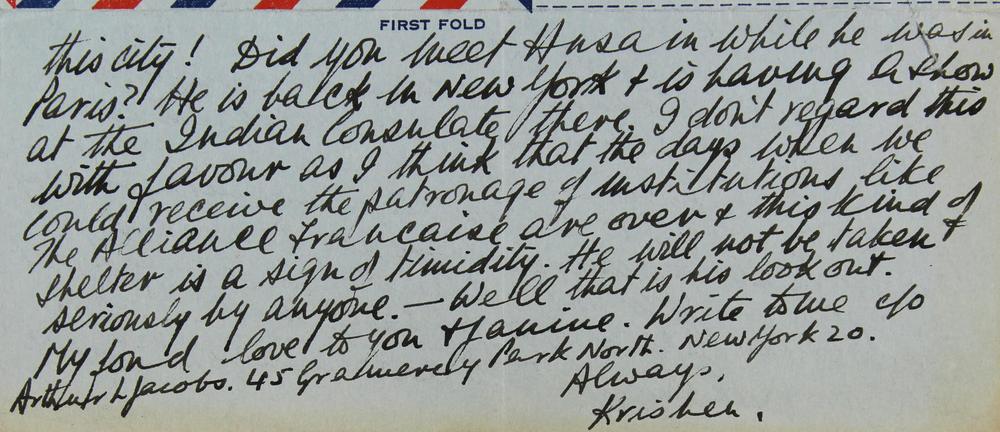 FIRST FOLD
this city! Did you meet Husain while he was in
Paris? He is back in New York & is having a show
at the Indian Consulate there. I don't regard this
with favour as I think that the days when we
could receive the patronage of institutions like
The Alliance Francaise are over & this kind of
shelter is a sign of timidity. He will not be taken
seriously by anyone. — Well that is his look out.
My fond love to you & Janine. Write to me c/o
Arthur L Jacobs. 45 Gramercy Park North. New York 20.
Always,
Krishen.